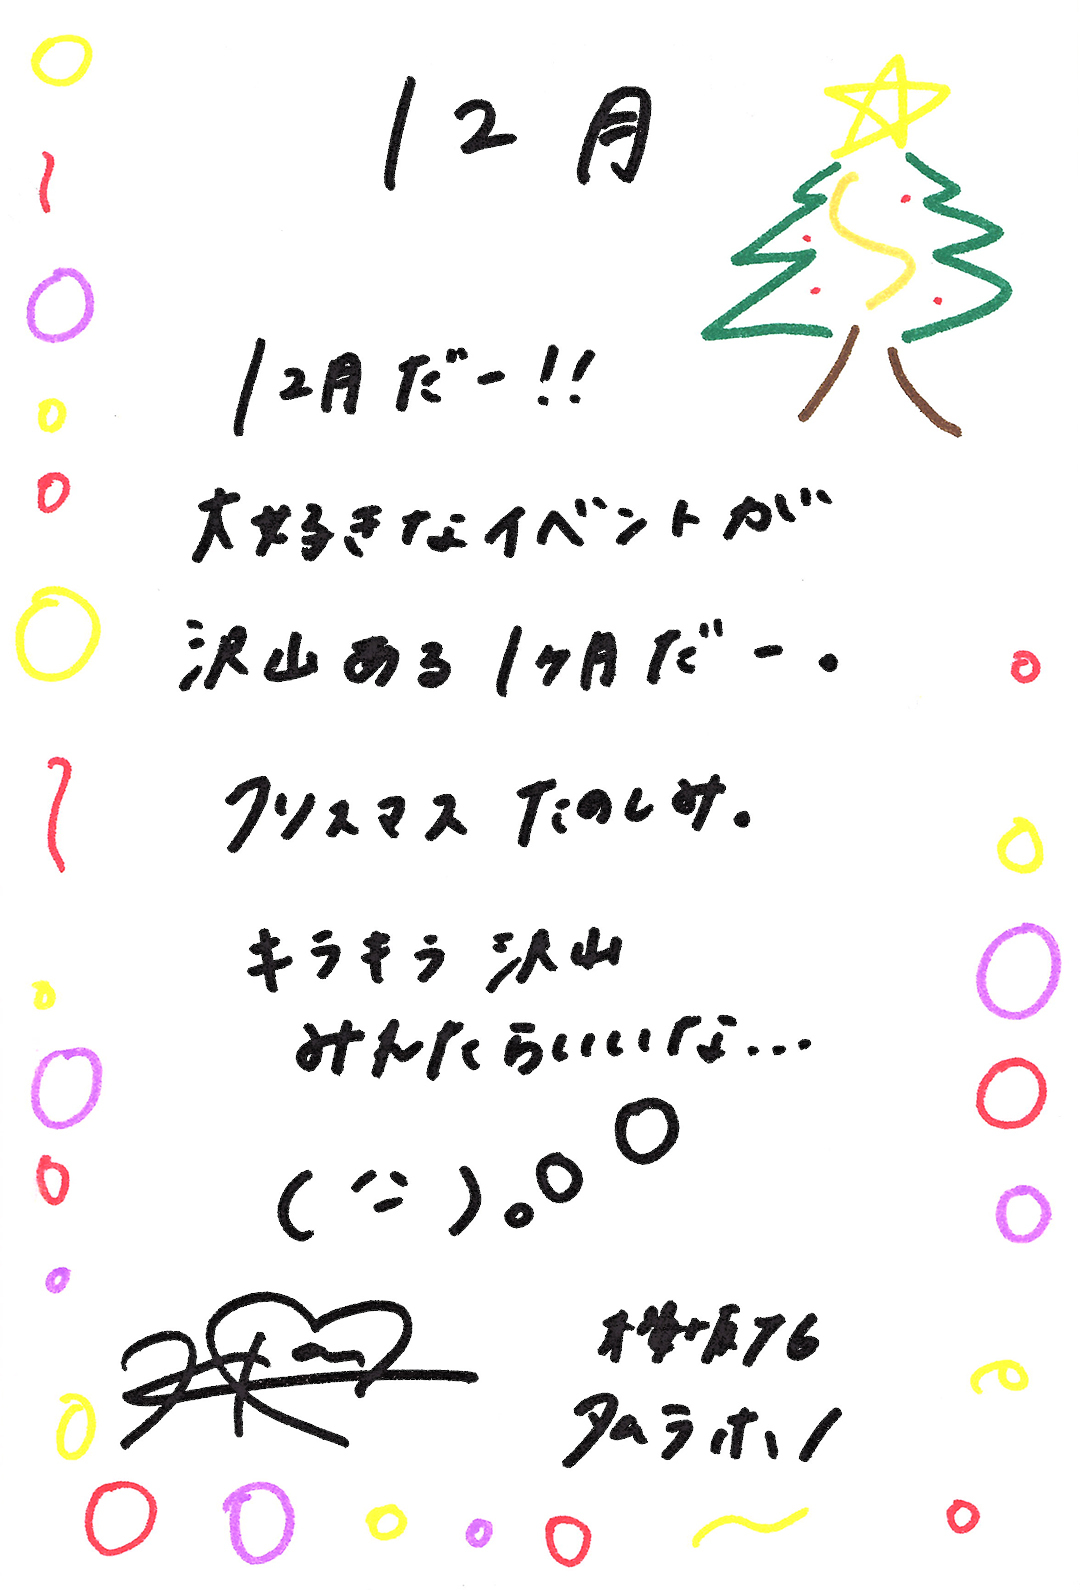 12月
12月だー!!
大好きなイベントが
沢山ある1ヶ月だー.
クリスマス たのしみ.
キラキラ 沢山
みれたらいいな...
櫻坂46